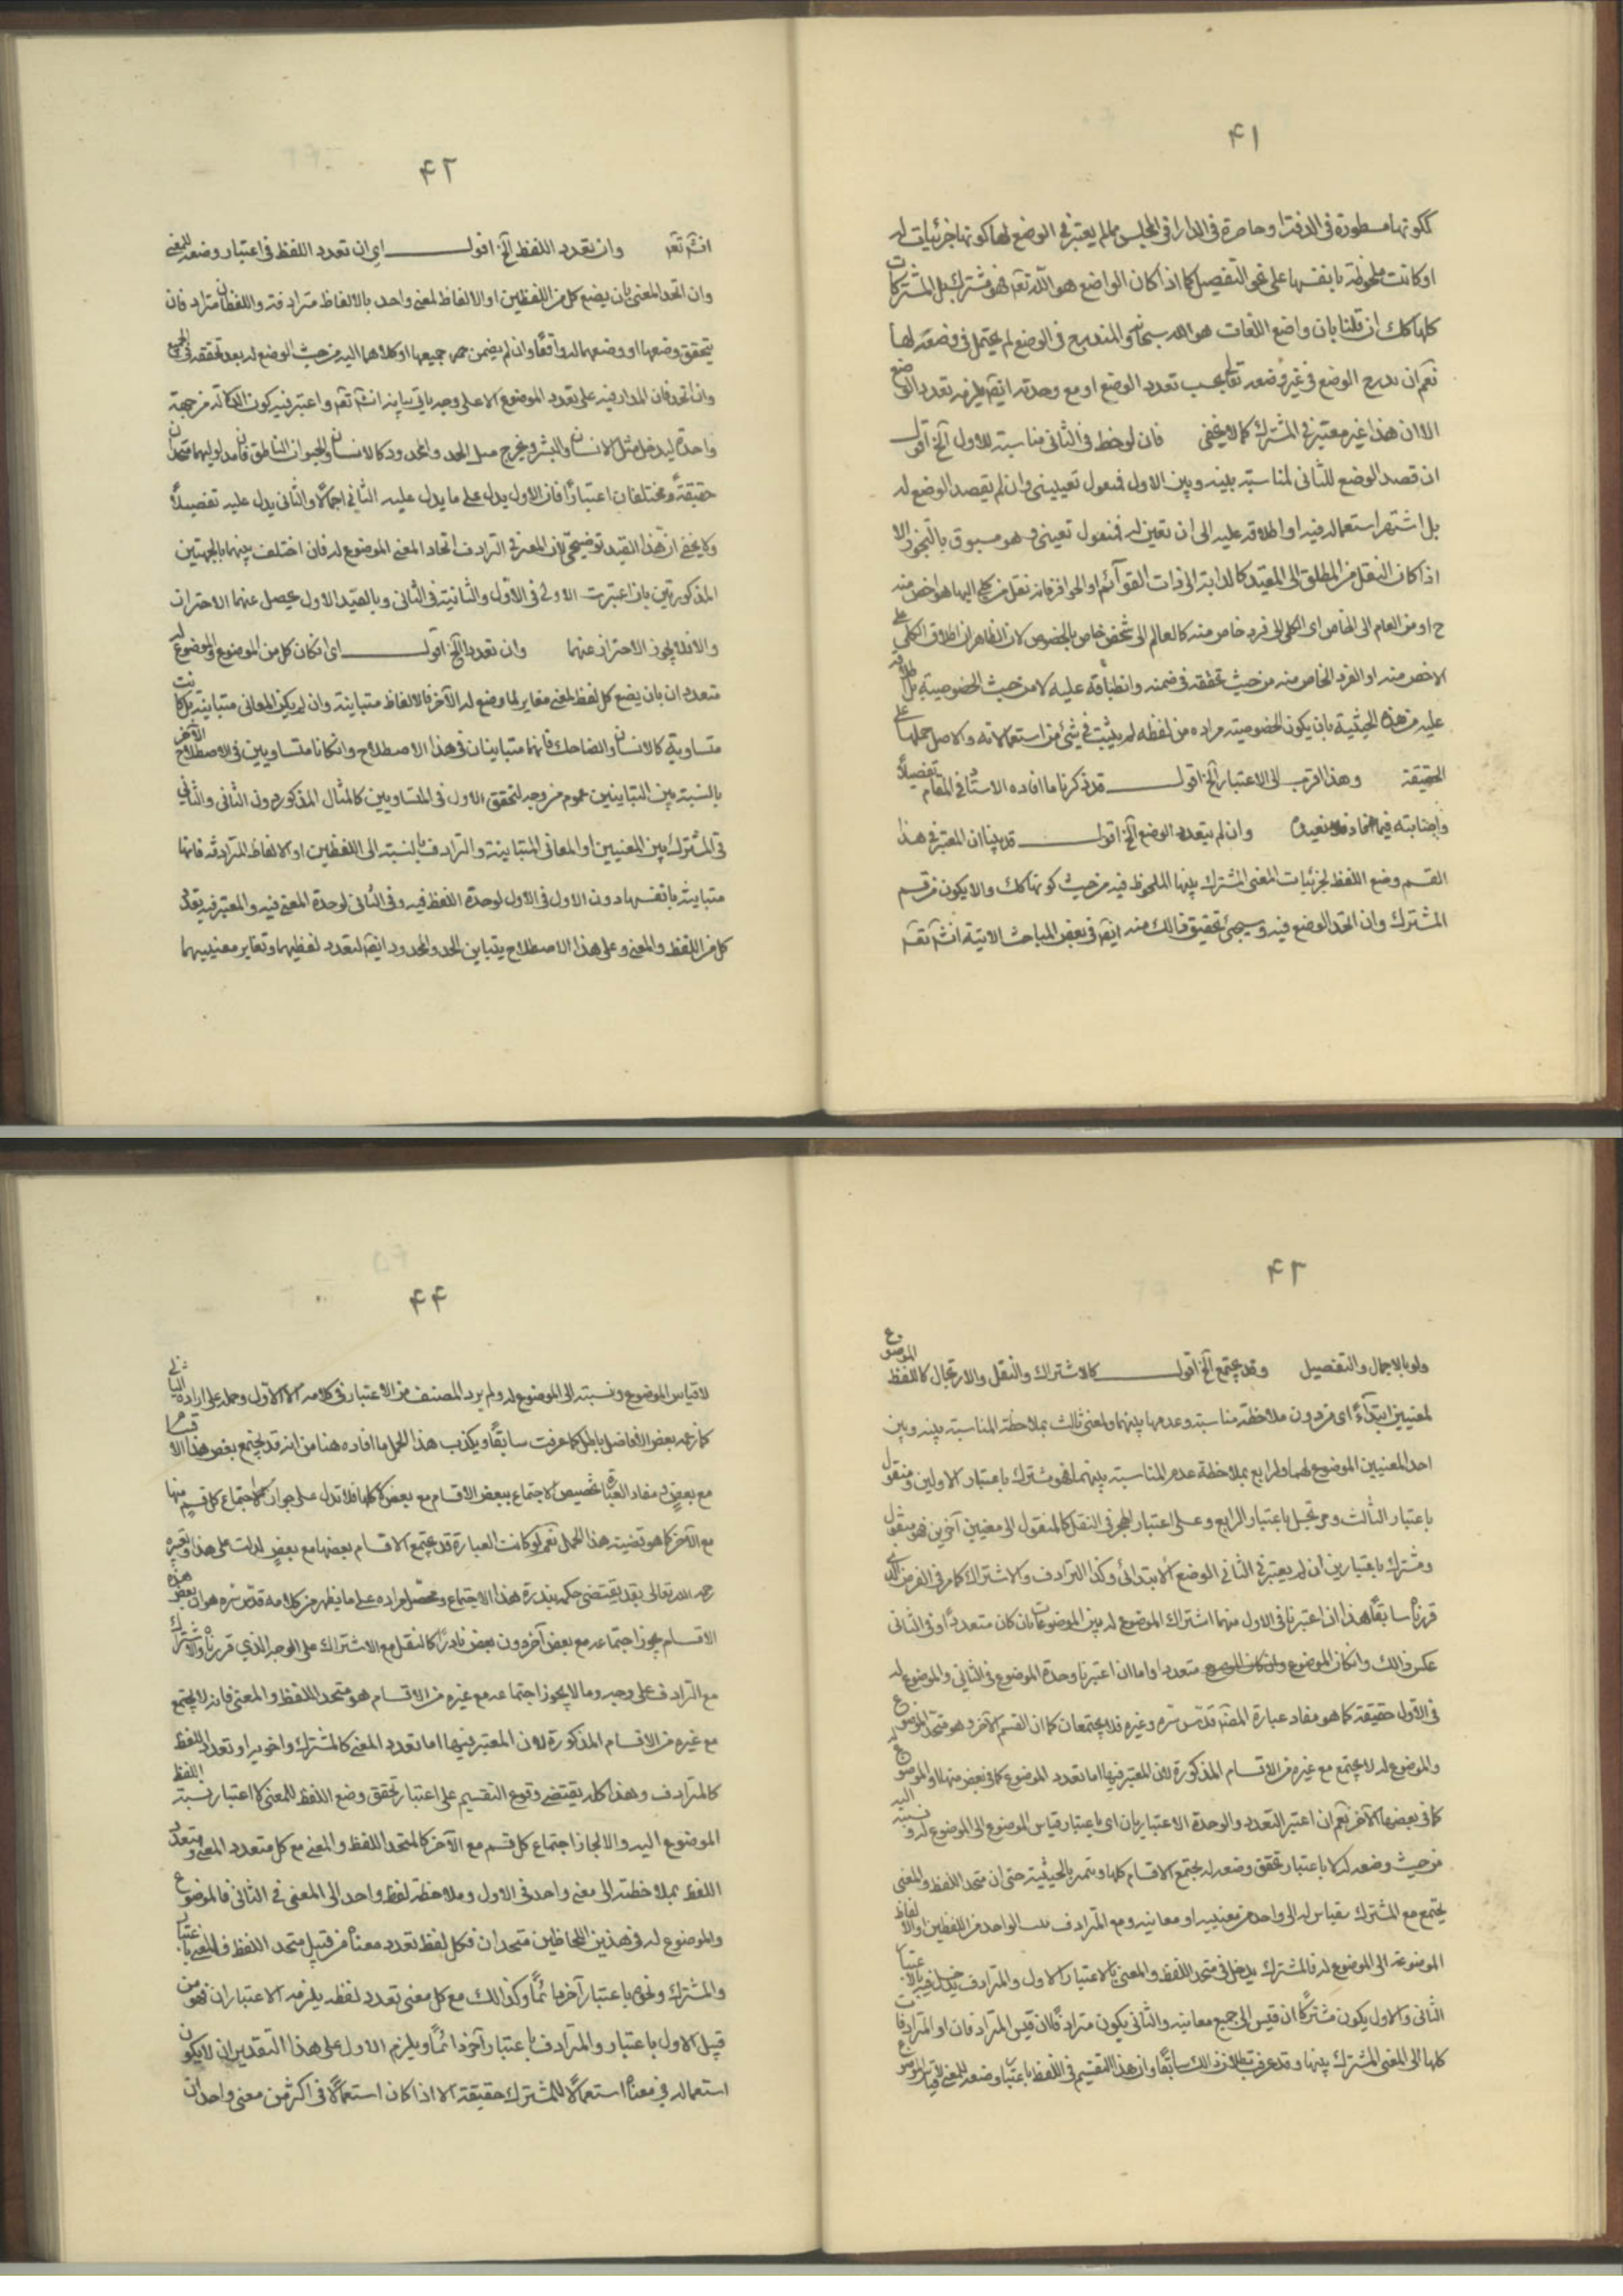 ۴۱
ككونها مسطورة فى الدفتر او حاضرة فى الدار او فى المجلس مما لم يعتبر فى الوضع لها كونها جزئيات له
او كانت ملحوظة بانفسها على نحو التفصيل كما اذا كان الواضع هو الله تعم فهو مشترك بل المشتركات
كلها كك ان قلنا بان واضع اللغات هو الله سبحانه و التدريج فى الوضع لم يحتمل فى وضعه لها
نعم ان تدرج الوضع فى غير وضعه تعالى يجب تعدد الوضع او مع وحدته ايضا يلزمه تعدد الوضع
الا ان هذا غير معتبر فى المشترك كما لا يخفى فان لوحظ فى الثانى مناسبته للاول آلخ اقول
ان قصد الوضع للثانى لمناسبة بينه وبين الاول فمنقول تعيينى وان لم يقصد الوضع له
بل اشتهر استعماله فيه او اطلاقه عليه الى ان تعين له فمنقول تعينى و هو مسبوق بالتجوز الا
اذا كان النقل من المطلق الى المقيد كالدابة الى ذات القوآئم او الحوافر فانه نقل من كلى اليها هو اخص منه
ح او من العام الى الخاص اى الكلى الى فرد خاص منه كالعالم الى شخص خاص بالخصوص لان الظاهر ان اطلاق الكلى على
الاخص منه او الفرد الخاص منه من حيث تحققه فى ضمنه وانطباقه عليه لا من حيث الخصوصية بل اطلاقه
عليه من هذه الحيثية بان يكون الخصوصية مراده من لفظه لم يثبت فى شئ من استعمالاته والاصل حملها على
الحقيقة وهذا اقرب الى الاعتبار آلخ اقول قد ذكرنا ما افاده الاستاد فى المقام تفصيلاً
واجبنا به فيما افاد فلا نعيده وان لم يتعدد الوضع آلخ اقول قد بينا ان المعتبر فى هذا
القسم وضع اللفظ لجزئيات المعنى المشترك بينها الملحوظ فيه من حيث كونها كك والا يكون من قسم
المشترك وان اتحد الوضع فيه وسيجئ تحقيق ذالك منه ايضا فى بعض المباحث الاتية انش تعم
۴۲
انش تعم وان تعدد اللفظ آلخ اقول اى ان تعدد اللفظ فى اعتبار وضعه للمعنى
وان اتحد المعنى بان يضع كل من اللفظين او الالفاظ لمعنى واحد بالالفاظ مترادفة واللفظان مترادفان
يتحقق وضعها او وضعهما له واقعًا وان لم يضمن جميعها او كلاهما اليه من حيث الوضع له بعد تحققه فى الجميع
وان اتحد فان المدار فيه على تعدد الموضوع لا على وجه ياتى بيانه انش تعم واعتبر فيه كون الدلالة من جهة
واحدة ليدخل مثل الانسان والبشر ويخرج مثل الحد والمحدود كالانسان والحيوان الناطق فان مدلوليهما متحدان
حقيقةً ومختلفان اعتبارًا فان الاول يدل على ما يدل عليه الثانى اجمالاً والثانى يدل عليه تفصيلاً
ولا يخفى ان هذا القيد توضيحى لان المعتبر فى الترادف اتحاد المعنى الموضوع له فان اختلف بينهما بالجهتين
المذكورتين بان اعتبرت الاولى فى الاول والثانية فى الثانى وبالقيد الاول يحصل عنهما الاحتراز
والا فلا يجوز الاحتراز عنهما وان تعددا آلخ اقول اى ان كان كل من الموضوع والموضوع له
متعددا ان بان يضع كل لفظ لمعنى مغاير لما وضع له الآخر فالالفاظ متباينة وان لم يكن المعانى متباينة بل كانت
متساوية كالانسان والضاحك فانهما متباينان فى هذا الاصطلاح وان كانا متساويين فى الاصطلاح الآخر
بالنسبة بين التباينين عموم من وجه لتحقق الاول فى المتساويين كالمثال المذكور دون الثانى والثانى
فى المشترك بين المعنيين او المعانى المتباينة والترادف بالنسبة الى اللفظين او الالفاظ المترادفة فانها
متباينة بانفسها دون الاول فى الاول لوحدة اللفظ فيه وفى الثانى لوحدة المعنى فيه والمعتبر فيه تعدد
كل من اللفظ والمعنى وعلى هذا الاصطلاح يتباين الحد والمحدود ايضا لتعدد لفظيهما وتغاير معنييهما
۴۳
ولو بالاجمال والتفصيل وقد يجتمع آلخ اقول كالاشتراك والنقل والارتجال كاللفظ الموضوع
لمعنيين ابتدآءً اى من دون ملاحظة مناسبة وعدمها بينهما ولمعنى ثالث بملاحظة المناسبة بينه وبين
احد المعنيين الموضوع لهما ولرابع بملاحظة عدم المناسبة بينهما فهو مشترك باعتبار الاولين ومنقول
باعتبار الثالث ومرتجل باعتبار الرابع وعلى اعتبار الهجر فى النقل كالمنقول الى معنيين آخرين فهو منقول
ومشترك باعتبارين ان لم يعتبر فى الثانى الوضع الابتدائى وكذا الترادف والاشتراك كما مر فى الفرض الذى
قررناه سابقًا هذا اذا اعتبرنا فى الاول منهما اشتراك الموضوع له بين الموضوعات بان كان متعددًا وفى الثانى
عكس ذالك وان كان الموضوع متعددا واما ان اعتبرنا وحدة الموضوع فى الثانى والموضوع له
فى الاول حقيقة كما هو مفاد عبارة المصنف قدس سره وغيره فلا يجتمعان كما ان القسم الآخر وهو متحد الموضوع
والموضوع له لا يجتمع مع غيره من الاقسام المذكورة لان المعتبر فيها اما تعدد الموضوع كما فى بعض منها او الموضوع له
كما فى بعضها الآخر نعم ان اعتبر التعدد والوحدة الاعتباريان اى باعتبار قياس الموضوع الى الموضوع له ونسبته اليه
من حيث وضعه له لا باعتبار تحقق وضعه له يجتمع الاقسام كلها ويتميز بالحيثية حتى ان متحد اللفظ والمعنى
يجتمع مع المشترك بقياس له الى واحد من معنييه او معانيه ومع المترادف الواحد من اللفظين او الالفاظ
الموضوعة الى الموضوع له فالمشترك يدخل فى متحد اللفظ والمعنى بالاعتبار الاول والمترادف يدخل فيه بالاعتبار
الثانى والاول يكون مشتركًا ان قيس الى جميع معانيه والثانى يكون مترادفًا ان قيس المترادفان او المترادفات
كلها الى المعنى المشترك بينها وقد عرفت بطلان ذالك سابقًا وان هذا التقسيم فى اللفظ باعتبار وضعه للمعنى لا قياس الموضوع
۴۴
لا قياس الموضوع ونسبته الى الموضوع له ولم يرد المصنف من الاعتبار فى كلامه الا الاول وحمله على ارادة الثانى
كما زعمه بعض الافاضل باطل كما عرفت سابقًا ويكذب هذا الحمل ما افاده هنا من انه قد يجتمع بعض هذا الاقسام
مع بعض فمفاد العبارة تخصيص الاجتماع ببعض الاقسام مع بعض لا كلها فلا تدل على جواز الاجتماع كل قسم منها
مع الآخر كما هو قضية هذا الحمل نعم لو كانت العبارة قد يجتمع الاقسام بعضها مع بعض لدلت على هذا وتعبيره
رحمه الله تعالى بقد يقتضى حكمه بندرة هذا الاجتماع ومحصل مراده على ما يظهر من كلامه قدس سره هو ان بعض هذه
الاقسام يجوز اجتماعه مع بعض آخر دون بعض نادرًا كالنقل مع الاشتراك على الوجه الذي قررناه والاشتراك
مع الترادف على وجه وما لا يجوز اجتماعه مع غيره من الاقسام هو متحد اللفظ والمعنى فانه لا يجتمع
مع غيره من الاقسام المذكورة لان المعتبر فيها اما تعدد المعنى كالمشترك واخويه او تعدد اللفظ
كالمترادف وهذا كله يقتضى وقوع التقسيم على اعتبار تحقق وضع اللفظ للمعنى لا اعتبار نسبة اللفظ
الموضوع اليه والا لجاز اجتماع كل قسم مع الآخر كالمتحد اللفظ والمعنى مع كل متعدد المعنى ومتعدد
اللفظ بملاحظته الى معنى واحد فى الاول وملاحظة لفظ واحد الى المعنى فى الثانى فالموضوع
والموضوع له فى هذين اللحاظين متحدان فكل لفظ تعدد معناه من قبيل متحد اللفظ والمعنى باعتبار
والمشترك ونحوه باعتبار آخر دائمًا وكذالك مع كل معنى تعدد لفظه يلزمه الاعتباران فهو من
قبيل الاول باعتبار والمترادف باعتبار آخر دائمًا ويلزم الاول على هذا التقدير ان لا يكون
استعماله فى معناه استعمالاً للمشترك حقيقة الا اذا كان استعمالاً فى اكثر من معنى واحد